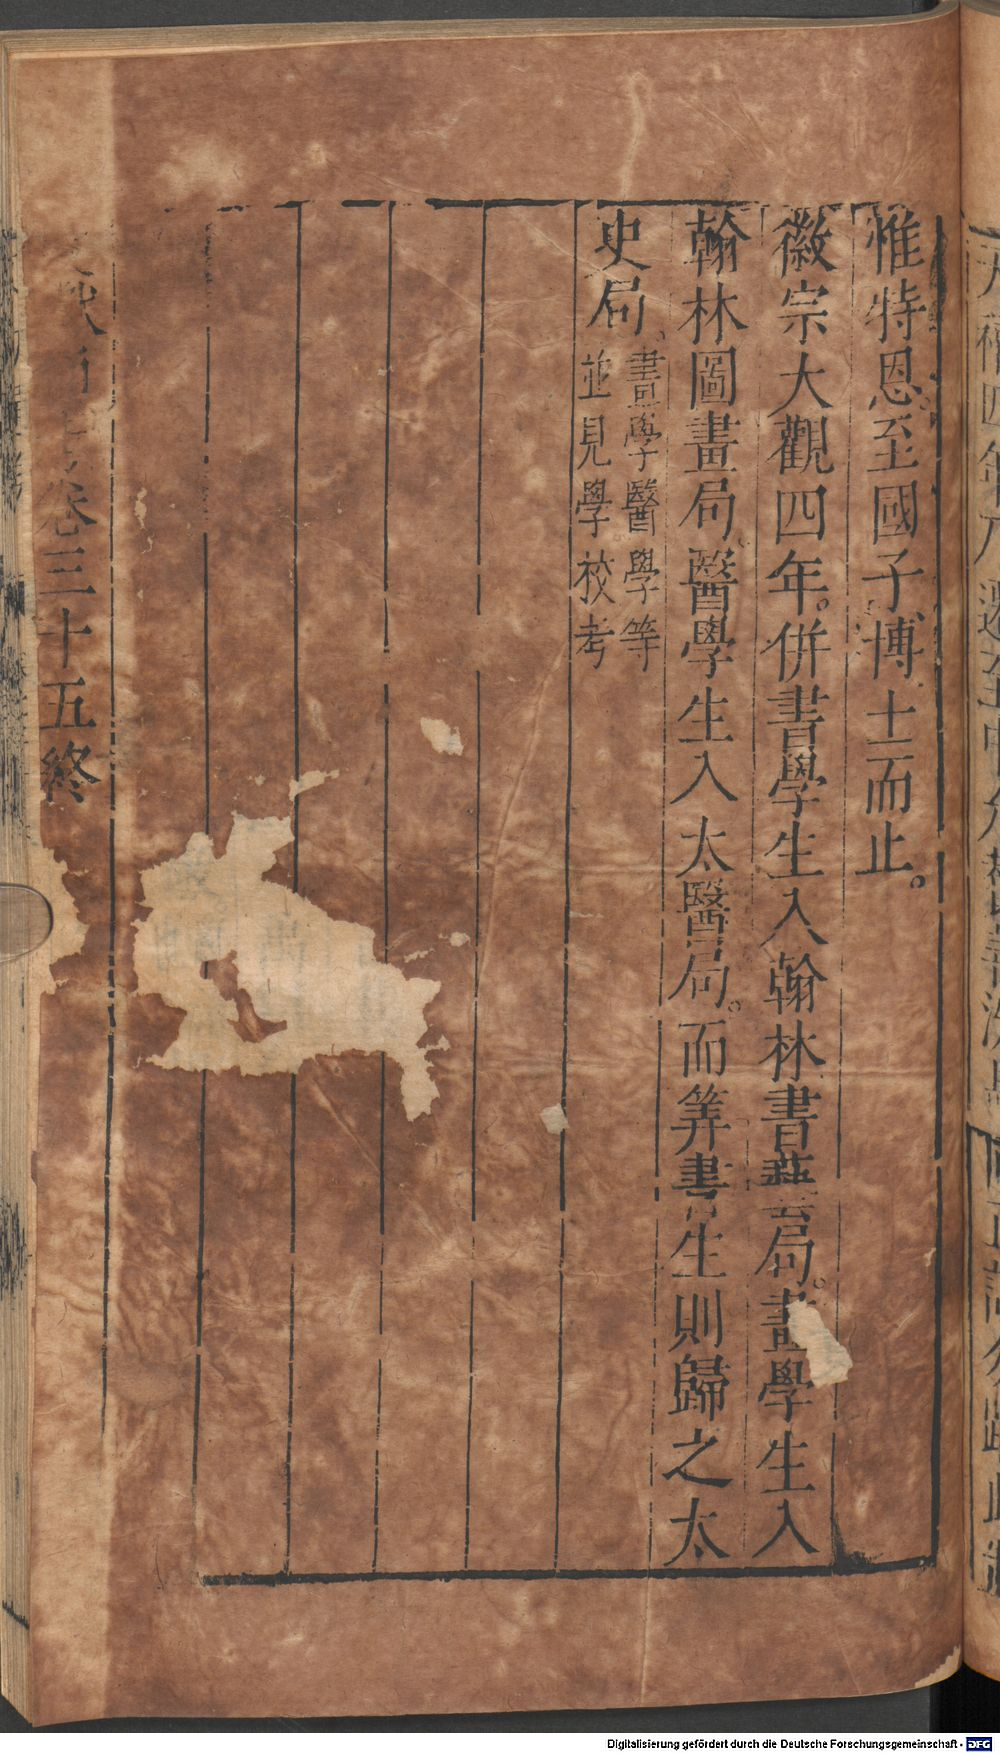 惟特恩至國子博士而止。
徽宗大觀四年。併書學生入翰林書藝局。畫學生入
翰林圖畫局。醫學生入太醫局。而筭學生則歸之太
史局、畫學醫學等
並見學校考
卷三十五終
Digitalisierung gefördert durch die Deutsche Forschungsgemeinschaft - DFG